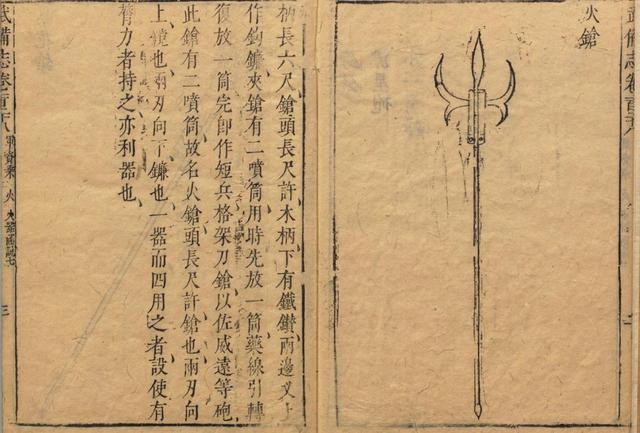 火鎗
柄長六尺鎗頭長尺許木柄下有鐵鑽兩邊叉上
作鈎鐮夾鎗有二噴筒用時先放一筒藥線引轉
復放一筒完即作短兵格架刀鎗以佐威遠等砲
此鎗有二噴筒故名火鎗頭長尺許鎗也兩刃向
上鐃也兩刃向下鐮也一器而四用之者設使有
膂力者持之亦利器也
武備志卷百 八 軍資乘 火 火器圖說七 三